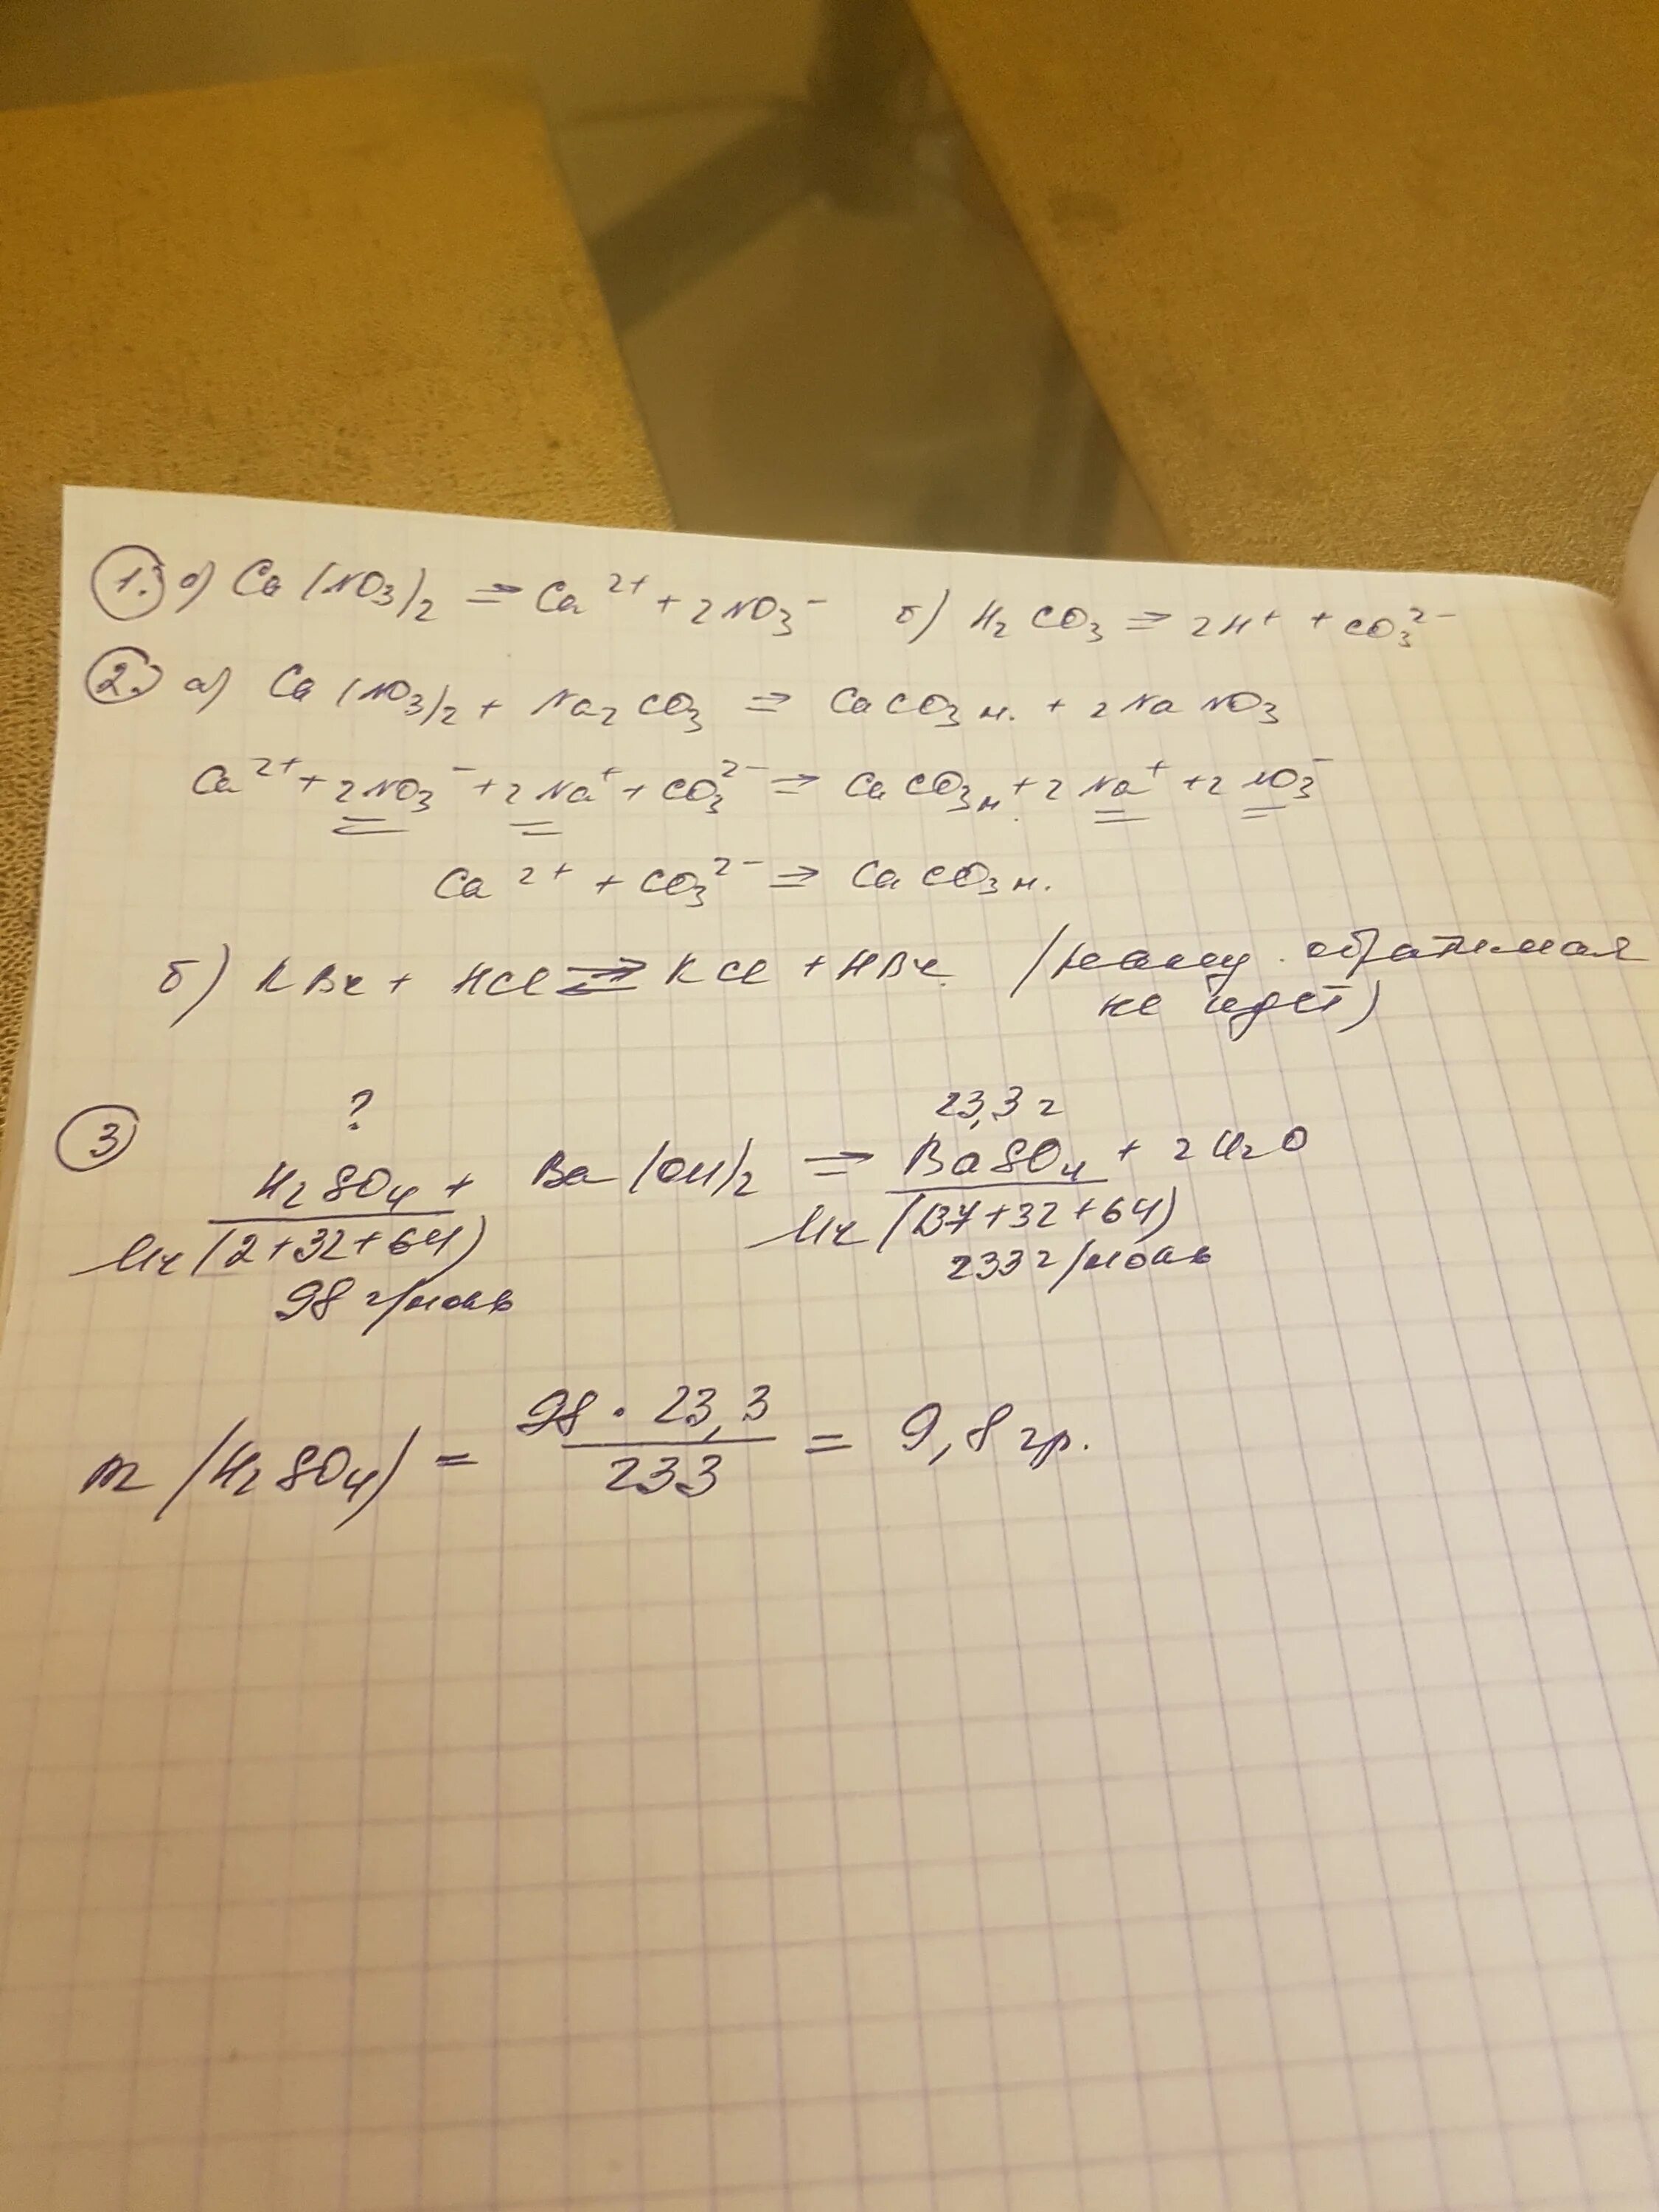 1. а) Ca(NO₃)₂ ⇒ Ca²⁺ + 2NO₃⁻ б) H₂CO₃ ⇒ 2H⁺ + CO₃²⁻
2. а) Ca(NO₃)₂ + Na₂CO₃ ⇒ CaCO₃ н. + 2NaNO₃
Ca²⁺ + 2NO₃⁻ + 2Na⁺ + CO₃²⁻ ⇒ CaCO₃ н. + 2Na⁺ + 2NO₃⁻
Ca²⁺ + CO₃²⁻ ⇒ CaCO₃ н.
б) KBr + HCl ⇄ KCl + HBr ( обратимая
не идет)
?
23,3 г
3 H₂SO₄ + Ba(OH)₂ ⇒ BaSO₄ + 2H₂O
Mr (2+32+64) Mr (137+32+64)
98 г/моль 233 г/моль
m (H₂SO₄) = 98 · 23,3 / 233 = 9,8 гр.